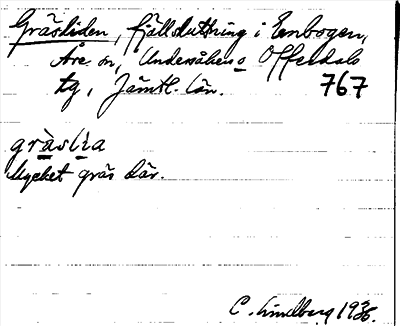 Gräsliden, fjällsluttning i Enbogen,
Åre sn, Undersåkers o Offerdals
tg, Jämtl. län. 767
gràslı̀a
Mycket gräs där.
C. Lindberg 1936.